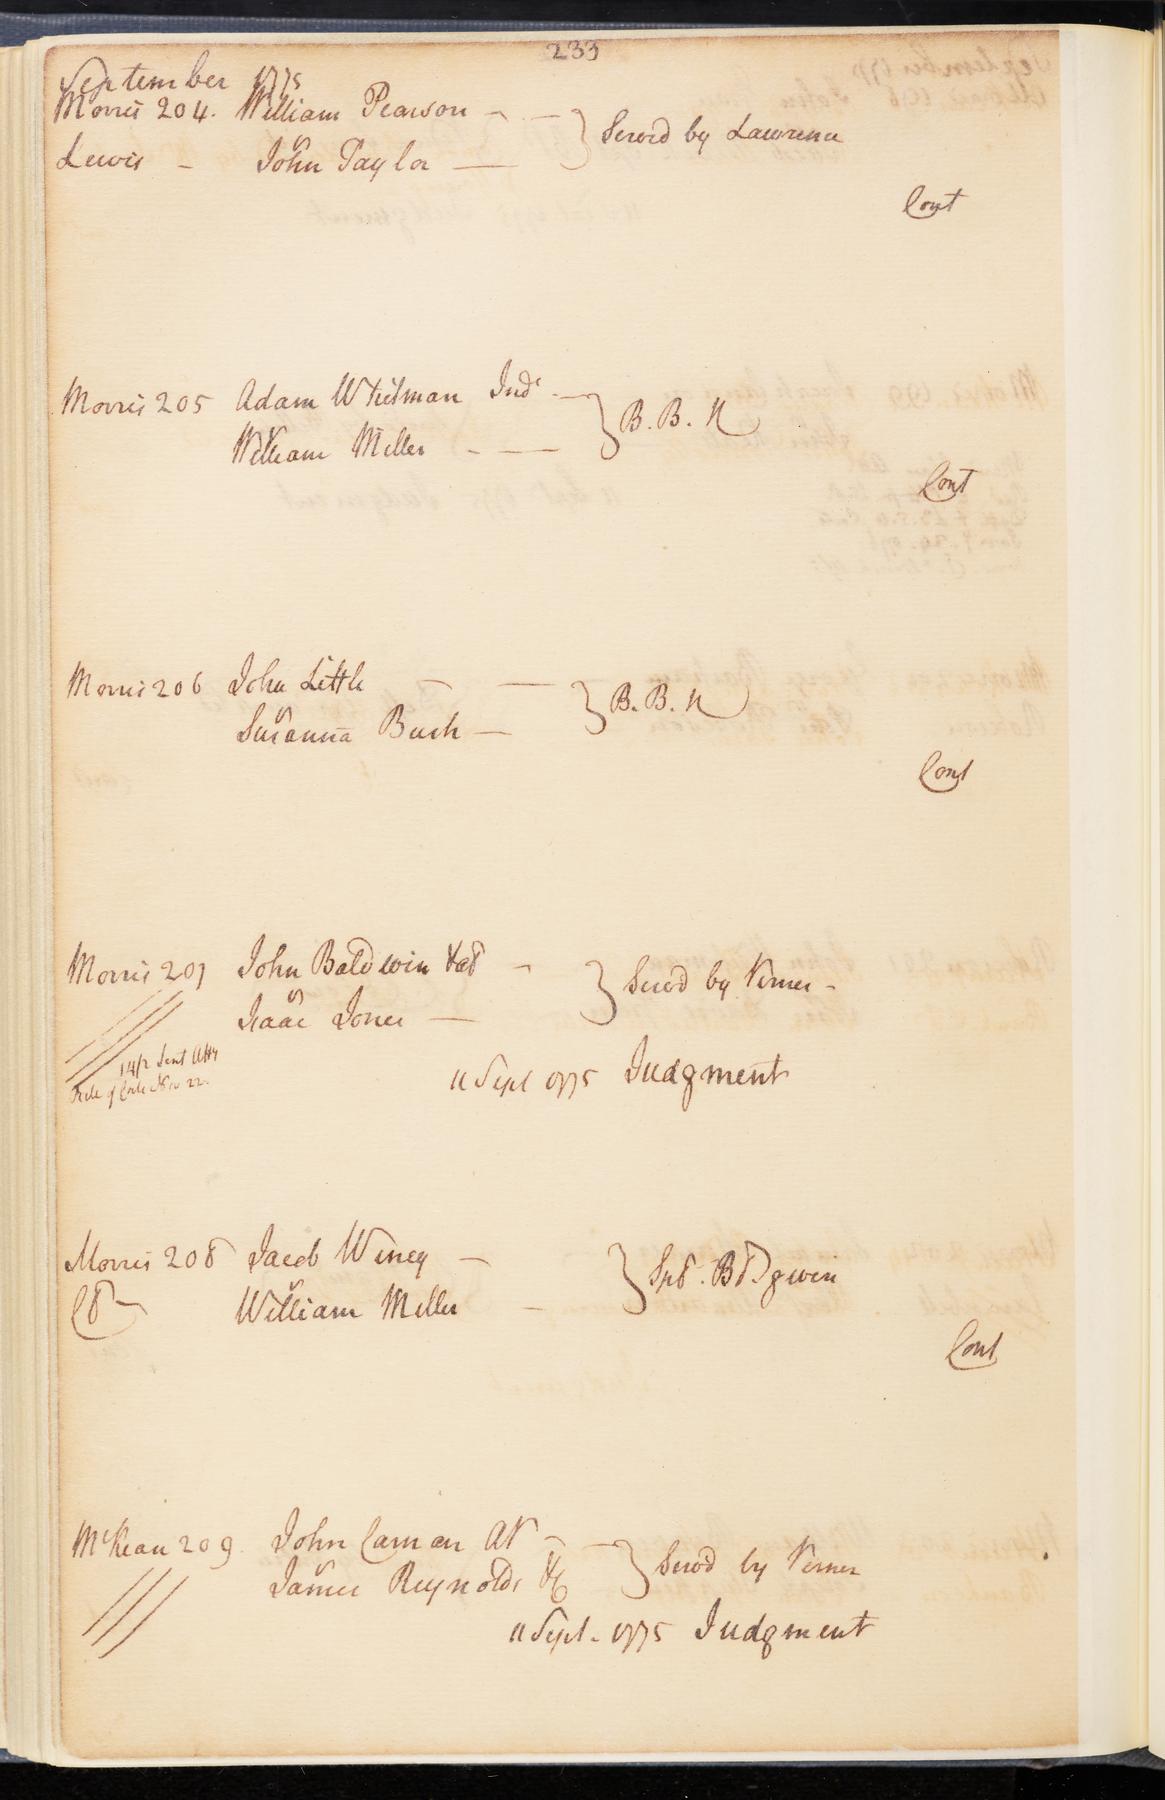 233
September 1775
Morris 204. William Pearson } Servd by Lawrence
Lewis - v John Taylor
Cont
Morris 205 Adam Whitman Indr } B. B. N
v William Miller
Cont
Morris 206 John Little } B. B. N
v Susanna Bush
Cont
Morris 207 John Baldwin } Servd by Verner -
v Isaac Jones
14/2 Sent Atty
11 Sept 1775 Judgment
Morris 208 Jacob Winey }
v William Miller
Cont
McKean 209 John Caman } Servd by Verner
v James Reynolds
11 Sept. 1775 Judgment